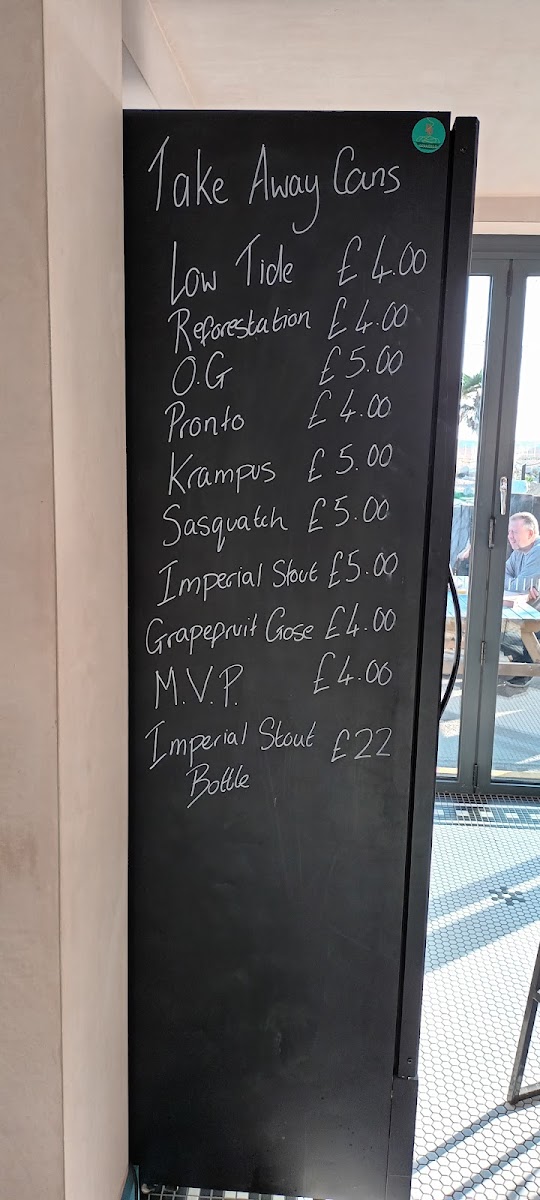 Take Away Cans
Low Tide £4.00
Reforestation £4.00
O.G £5.00
Pronto £4.00
Krampus £5.00
Sasquatch £5.00
Imperial Stout £5.00
Grapefruit Gose £4.00
M.V.P. £4.00
Imperial Stout £22
Bottle